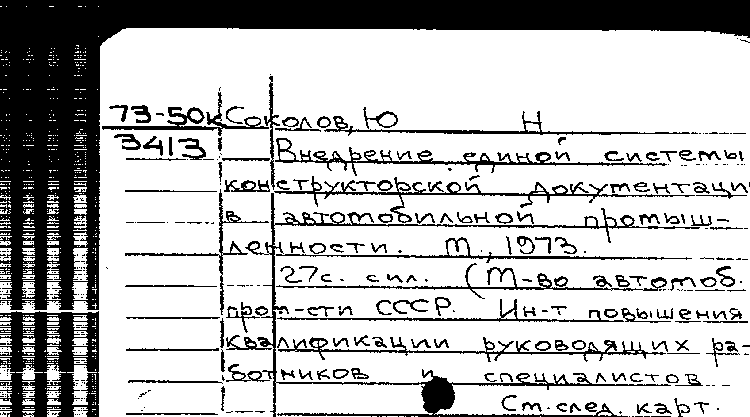 73-50к Соколов, Ю Н
3413 Внедрение единой системы
конструкторской документаци
в автомобильной промыш-
ленности. М., 1973.
27с. сил. (М-во автомоб.
пром-сти СССР. Ин-т повышения
квалификации руководящих ра-
ботников и специалистов
См. след. карт.